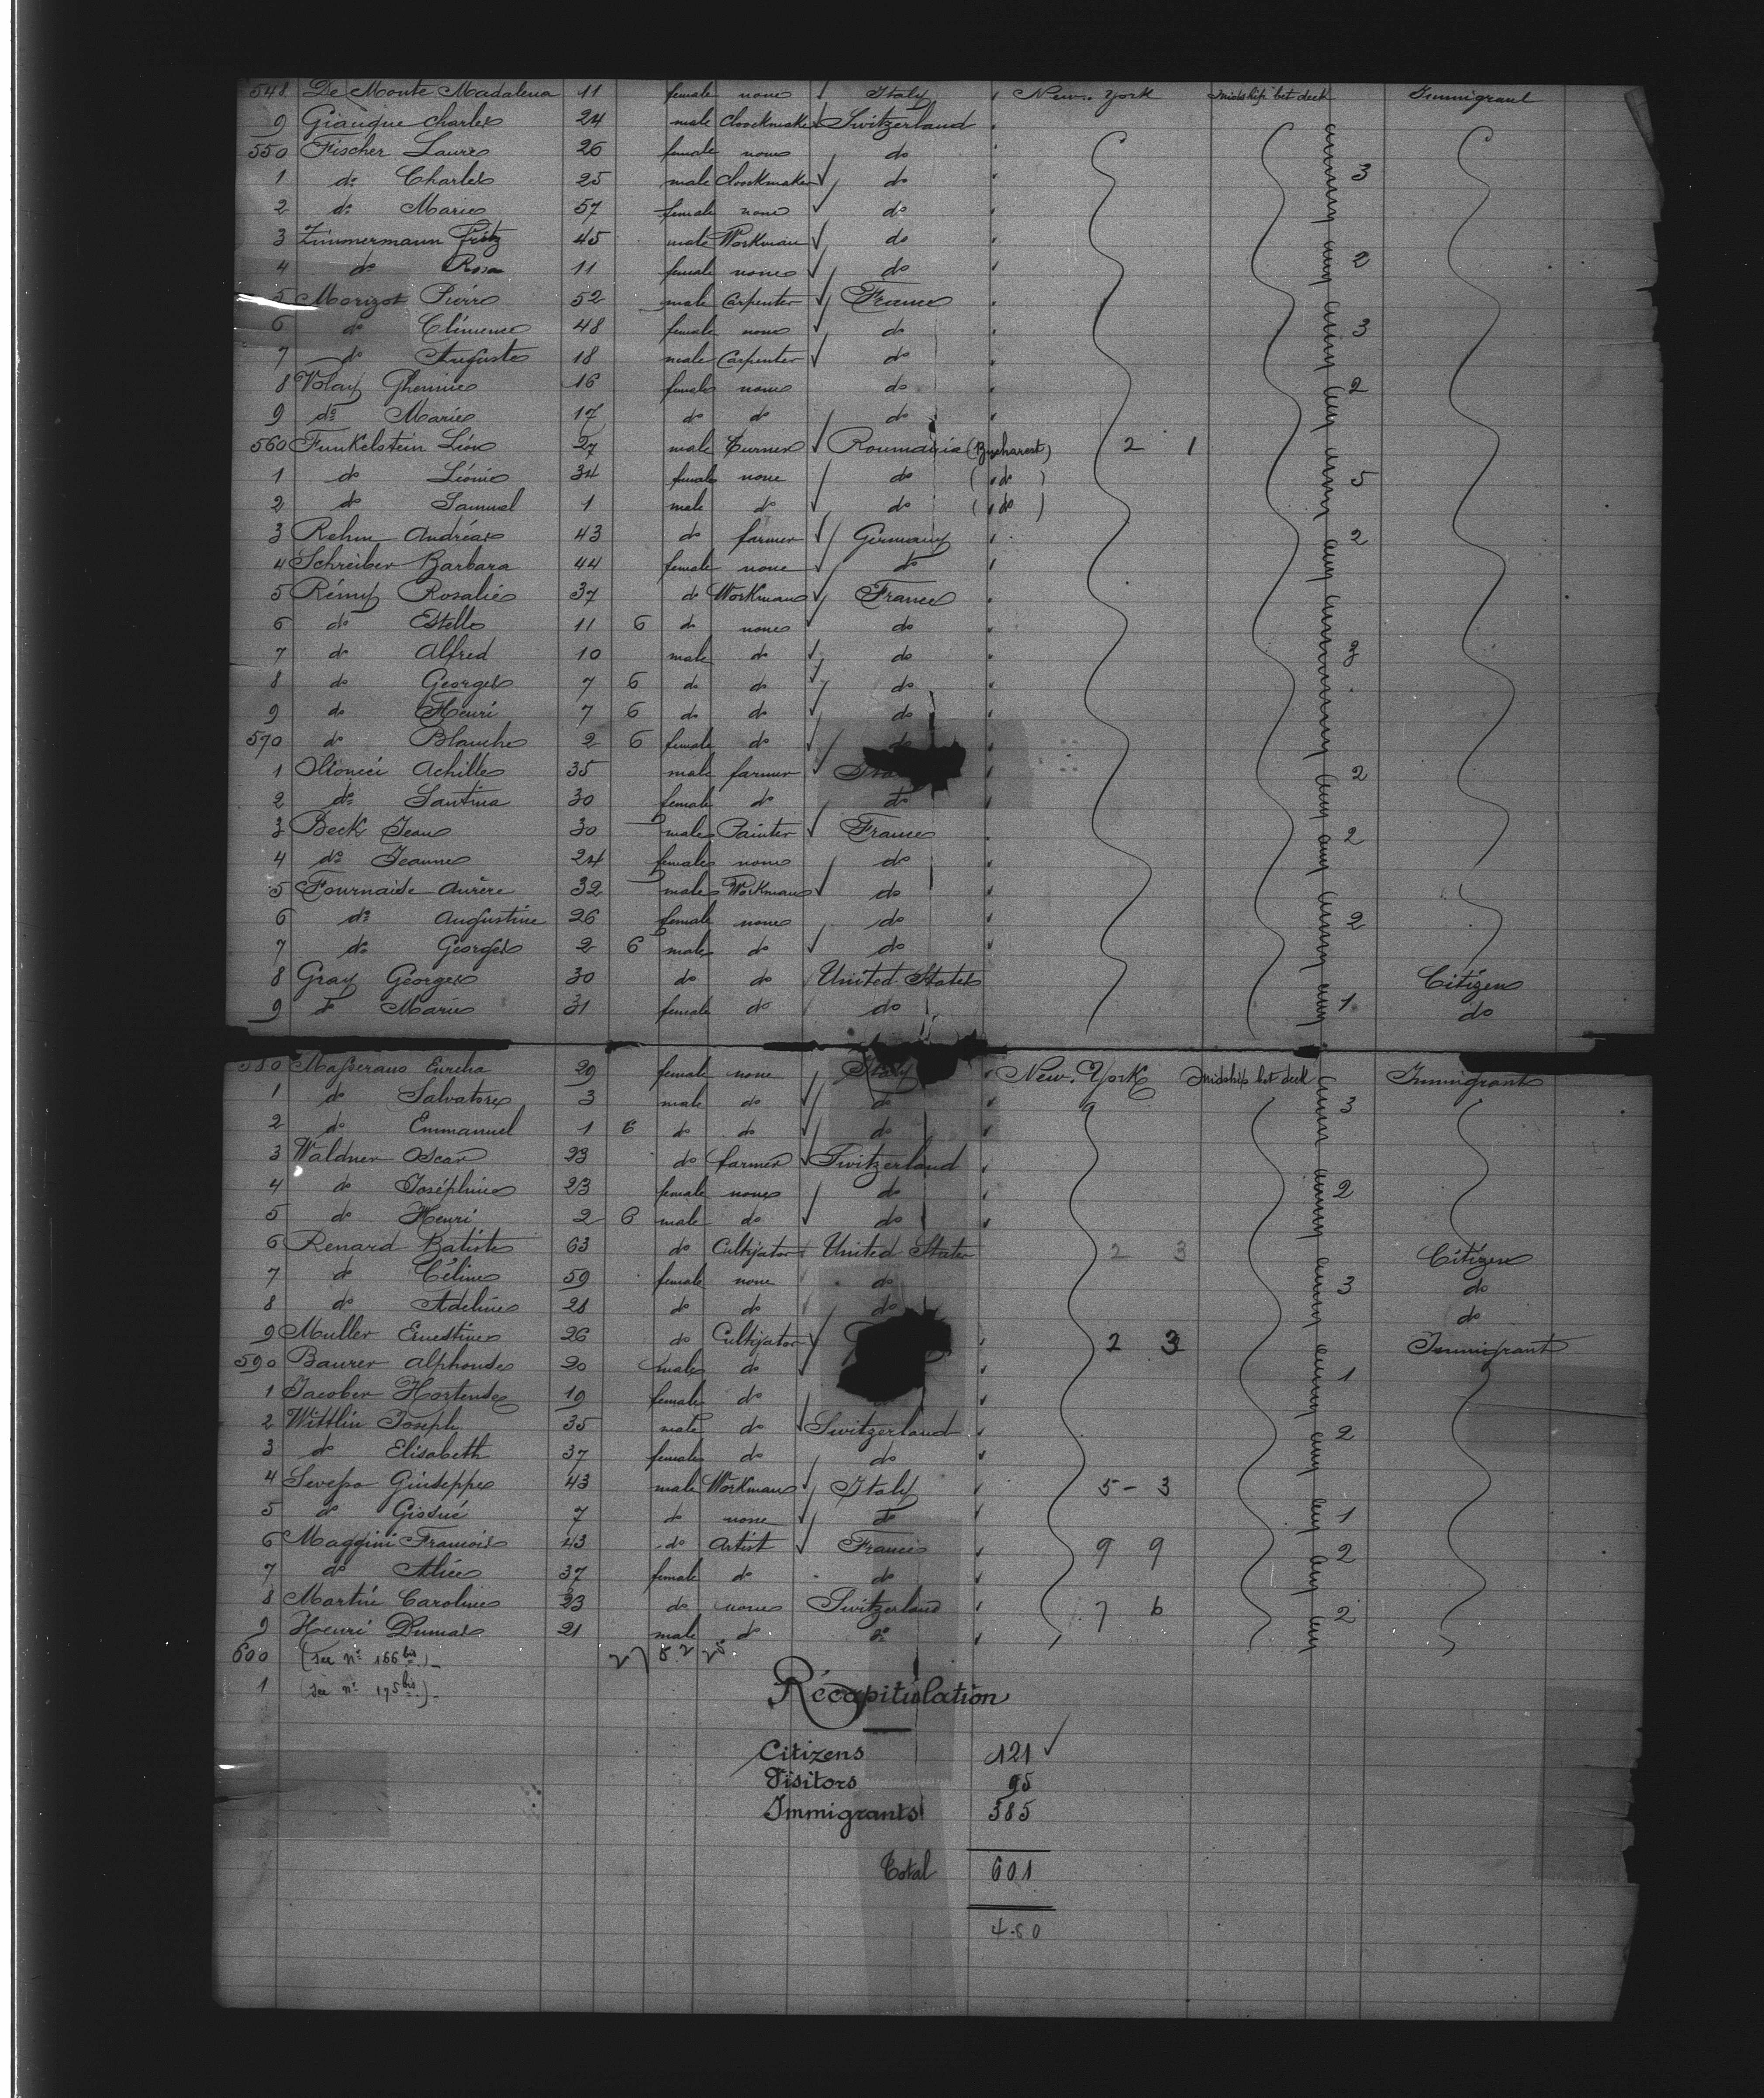 548 De Monte Madalena 11 female none Italy New-York midship bet deck Immigrant
9 Giauque Charles 24 male Cloockmaker Switzerland
550 Fischer Laure 26 female none do
1 do Charles 25 male Cloockmaker do 3
2 do Marie 57 female none do
3 Zimmermann Fritz 45 male Workman do
4 do Rosa 11 female none do 2
5 Morizot Pierre 52 male Carpenter France
6 do Clémence 48 female none do 3
7 do Auguste 18 male Carpenter do
8 Volay 16 female none do 2
9 do Marie 17 do do do
560 Funkelstein Léon 27 male Turner Roumania (Bucharest) 2 1
1 do Léonie 34 female none do (do) 5
2 do Samuel 1 male do do (do)
3 Rehm Andréas 43 do farmer Germany 2
4 Schreiber Barbara 44 female none do
5 Rémy Rosalie 37 do Workman France
6 do Estelle 11 6 do none do
7 do Alfred 10 male do do
8 do Georges 7 6 do do do
9 do Henri 7 6 do do do
570 do Blanche 2 6 female do do
1 Achille 35 male farmer 2
2 do Santina 30 female do do
3 Beck Jean 30 male Painter France 2
4 do Jeanne 24 female none do
5 Fournaide Aurère 32 male Workman do
6 do Augustine 26 female none do 2
7 do Georges 2 6 male do do
8 Gray Georges 30 do do United States Citizen
9 do Marie 31 female do do 1 do
580 Masserano 29 female none Italy New-York midship bet deck Immigrant
1 do Salvatore 3 male do do 3
2 do Emmanuel 1 6 do do do
3 Waldner Oscar 23 do farmer Switzerland
4 do Joséphine 23 female none do 2
5 do Henri 2 6 male do do
6 Renard Batiste 63 do Cultivator United States 2 3 Citizen
7 do Céline 59 female none do 3 do
8 do Adeline 28 do do do do
9 Muller Ernestine 26 do Cultivator 2 3 Immigrant
590 Baurer Alphonse 20 male do 1
1 Jacober Hortense 19 female do
2 Wittlin Joseph 35 male do Switzerland 2
3 do Elisabeth 37 female do do
4 Giuseppe 43 male Workman Italy 5-3
5 do Giosué 7 do none do 1
6 Maggini Francois 43 do Artist France 9 9 2
7 do Alice 37 female do do
8 Martin Caroline 23 do none Switzerland 7 6 2
9 Henri Dumas 21 male do do
600 (See n° 166 bis)
1 (See n° 175 bis)
Récapitulation
Citizens 121
Visitors 95
Immigrants 385
Total 601
480